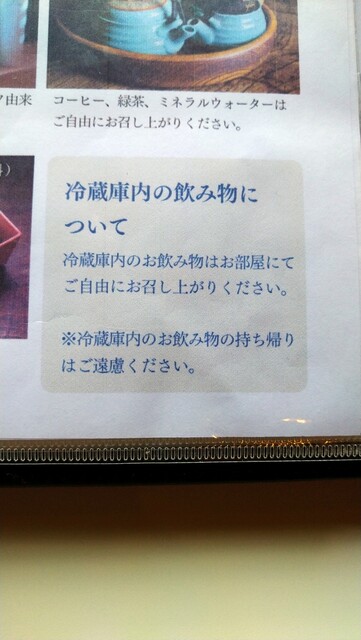 由来
コーヒー、緑茶、ミネラルウォーターは
ご自由にお召し上がりください。
冷蔵庫内の飲み物に
ついて
冷蔵庫内のお飲み物はお部屋にて
ご自由にお召し上がりください。
※冷蔵庫内のお飲み物の持ち帰り
はご遠慮ください。